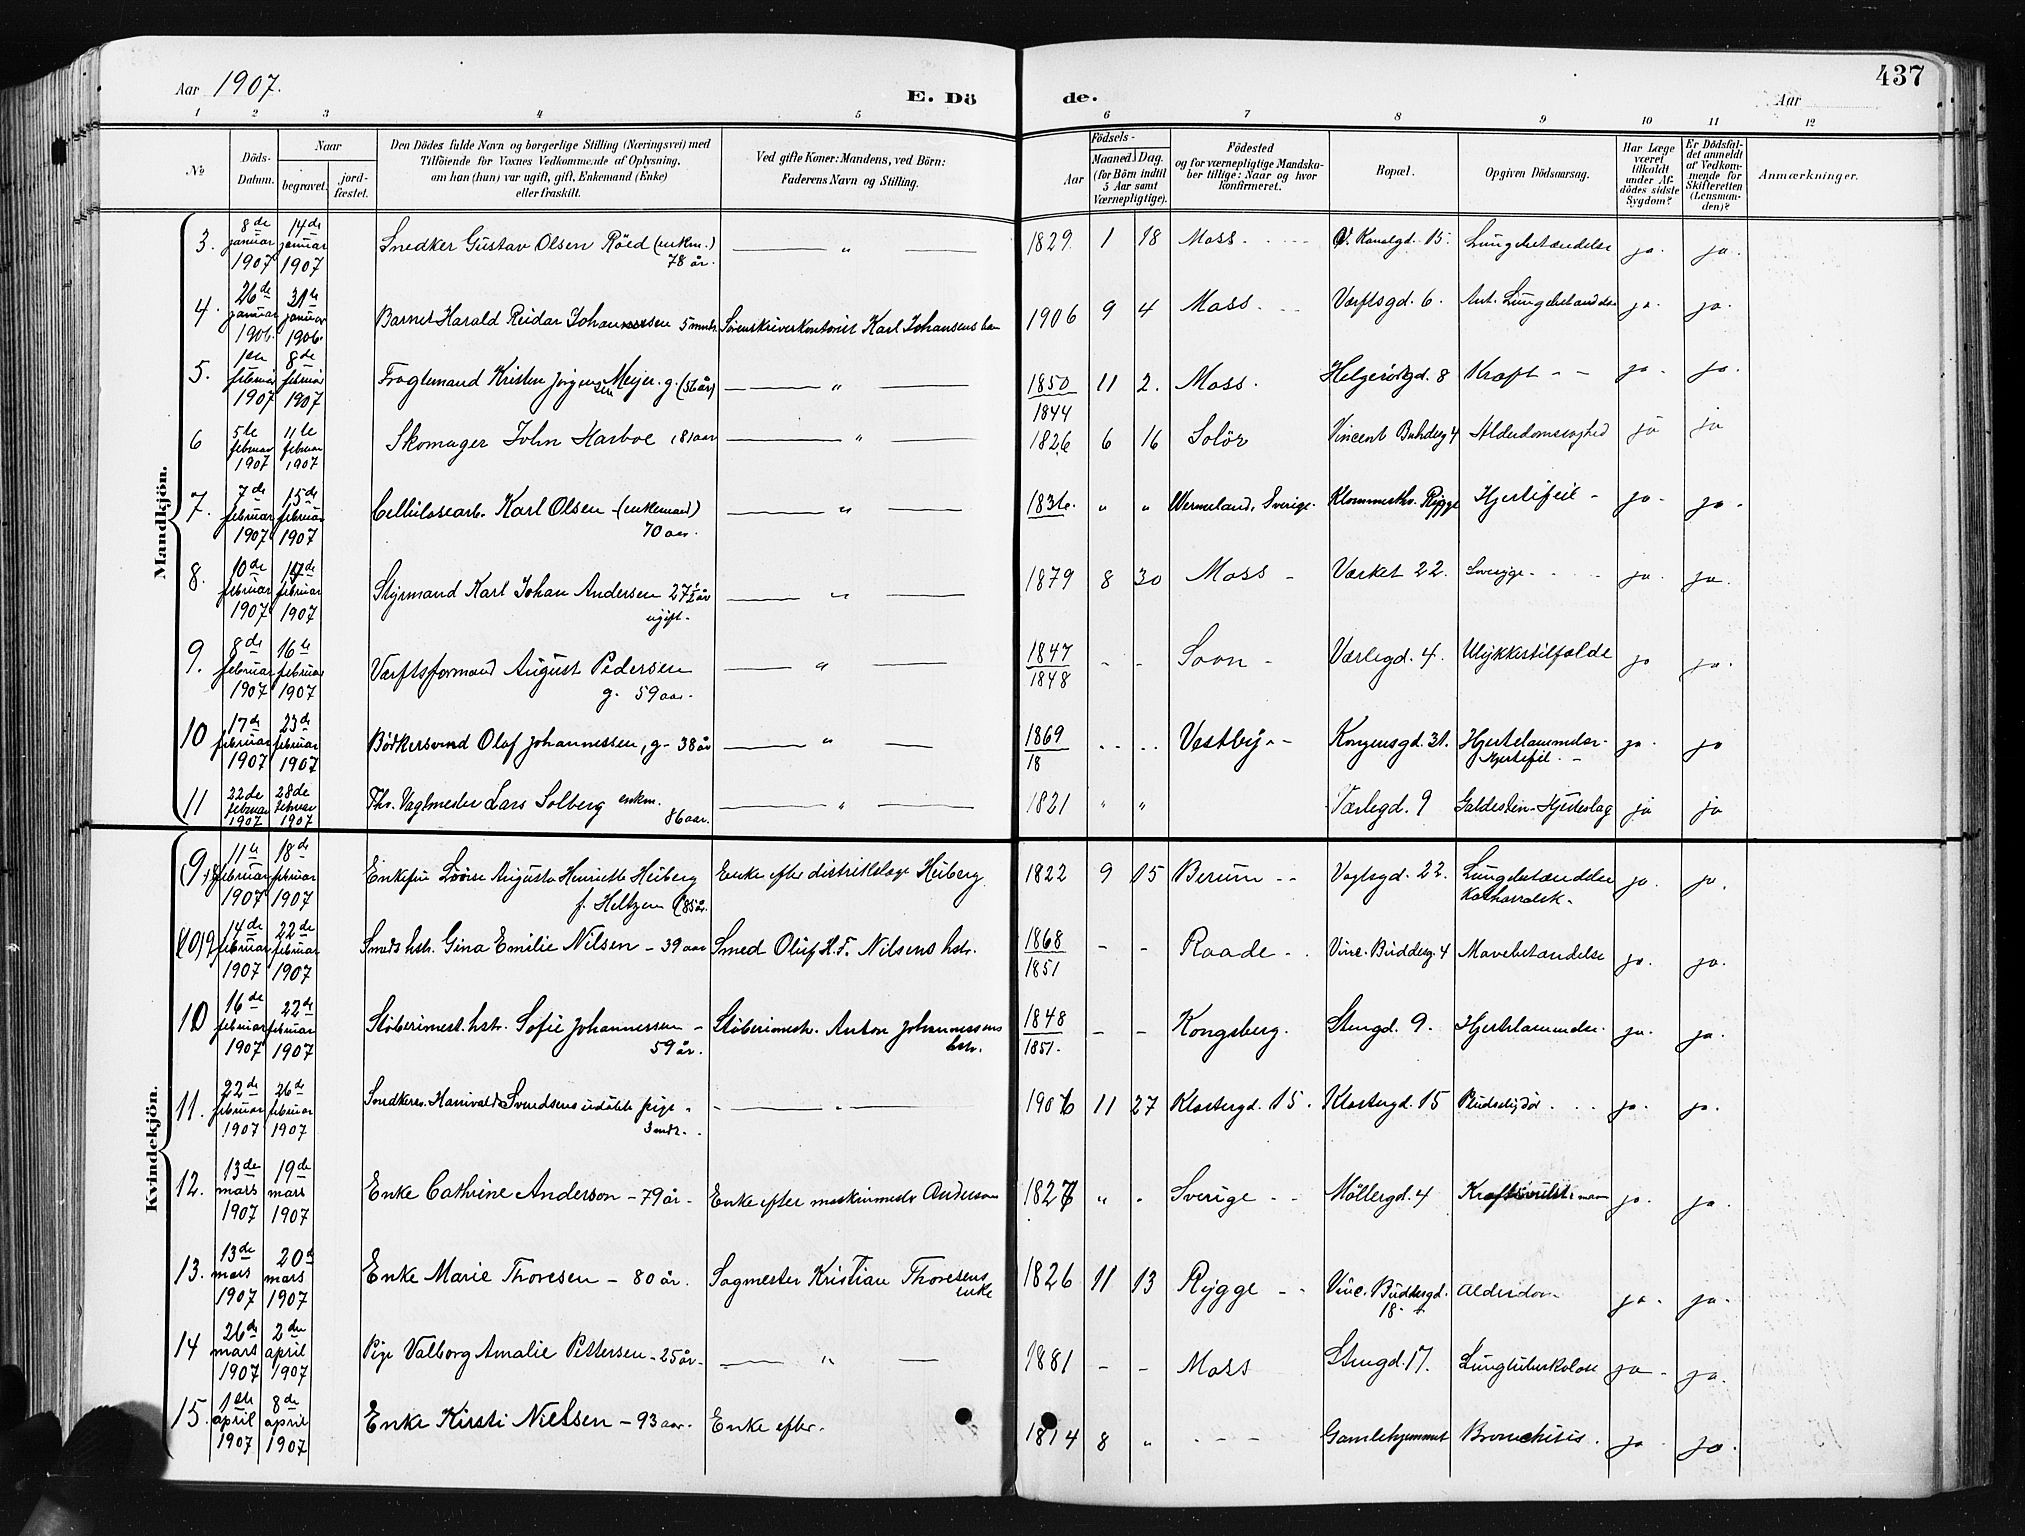 Aar 1907.
E. Dö de.
Aar
437
1 2 3 4 5 6 7 8 9 10 11 12
№
Döds-Datum.
Naar
begravet.
jord-fæstet.
Den Dödes fulde Navn og borgerlige Stilling (Næringsvei) med
Tilföiende for Voxnes Vedkommende af Oplysning,
om han (hun) var ugift, gift, Enkemand (Enke)
eller fraskilt.
Ved gifte Koner: Mandens, ved Börn:
Faderens Navn og Stilling.
Födsels-
Aar
Maaned. Dag.
(for Börn indtil
5 Aar samt
Værnepligtige).
Födested
og for værnepligtige Mandska-
ber tillige: Naar og hvor
konfirmeret.
Bopæl.
Opgiven Dödsaarsag.
Har Læge
været
tilkaldt
under Af-
dödes sidste
Sygdom?
Er Dödsfal-
det anmeldt
af Vedkom-
mende for
Skifteretten
(Lensman-
den)?
Anmærkninger.
Mandkjön.
3. 8de januar 1907 14de januar 1907 Snedker Gustav Olsen Röed (enkm.) 78 år. — " — 1829. 1 18 Moss. V. Kanalgd. 15. Lungebetændelse ja. ja.
4. 26de januar 1906. 31te januar 1906. Barnet Harald Reidar Johannesen 5 mnd. Sorenskriverkontorist Karl Johansens 1906 9 4 Moss. Værftsgd. 6. Aut. Lungebetændelse ja. ja.
5. 1ste februar 1907 8de februar 1907 Fragtemand Kristen Jörgensen Meyer. g. (56 år) — " — 1850 1844 11 2. Moss. Helgerödgd. 8 Kræft ja. ja.
6 5te februar 1907 11te februar 1907 Skomager John Harboe (81 aar — " — 1826 6 16 Solör Vincent Buddesg 4 Alderdomssvaghed ja ja
7. 7de februar 1907 15de februar 1907 Cellulosearb. Karl Olsen (enkemand) 70 aar. — " — 1836. " " Wermeland, Sverige. Rygge Hjertefeil ja. ja.
8. 10de februar 1907 17de februar 1907 Styrmand Karl Johan Andersen 27½ år ugift. — " — 1879 8 30 Moss Værket 22. ja. ja.
9. 8de februar 1907 16te februar 1907 Værftsformand August Pedersen g. 59 aar. — " — 1847 1848 - - Soon Værlegd. 4. Ulykkestilfælde ja ja.
10 17de februar 1907 23de februar 1907 Bödkersvend Olaf Johannessen, g. 38 år — " — 1869 18 Vestby Kongensgd. 31. Hjertelammelse Hjertefeil. ja. ja
11 22de februar 1907 28de februar 1907 Fhv. Vagtmester Lars Solberg enkm. 86 aar. — " — 1821 " " Værlegd. 9 Galdesten-Hjerteslag ja ja
Kvindekjön.
(9) 8 11te februar 1907 18de februar 1907 Enkefru Lovise Augusta Henriette Heiberg f. Heltzen (85 år. Enke efter distriktslæge Heiberg. 1822 9 15 Berum Vogtsgd. 22. Lungebetændelse Katharralsk. ja. ja.
(10) 9 14de februar 1907 22de februar 1907 Smeds hstr. Gina Emilie Nilsen - 39 aar Smed Oluf H. F. Nilsens hstr. 1868 1851 - - Raade Vinc. Buddesg. 4 Mavebetændelse ja. ja.
10 16de februar 1907 22de februar 1907 Stöberimest. hstr. Sofie Johannessen 59 år. Stöberimestr. Anton Johannessens hstr. 1848 1851. - - Kongsberg. Stengd. 9. Hjertelammelse. ja. ja.
11. 22de februar 1907 26de februar 1907 Snedkersv. Harivald Svendsens udöbte pige 3 mdr. — " — 1906 11 27 Klostergd. 15. Klostergd. 15 Pludselig död ja. ja.
12. 13de mars 1907 19de mars 1907 Enke Cathrine Anderson - 79 år. Enke efter maskinmestr Anderson 1827 " " Sverige Möllergd. 4 ja. ja.
13. 13de mars 1907 20de mars 1907 Enke Marie Thoresen - 80 år. Sagmester Kristian Thoresens enke 1826 11 13 Rygge Vinc. Buddesgd. 18 Alderdom ja. ja.
14 26de mars 1907 2den april 1907 Pige Valborg Amalie Pettersen - 25 år. — " — 1881 - - Moss Stengd. 17. Lungtuberkolose ja. ja.
15. 1ste april 1907 8de april 1907 Enke Kirsti Nielsen - 93 aar. Enke efter. 1814 8 " Gamlehjemmet Bronchitis. ja ja.